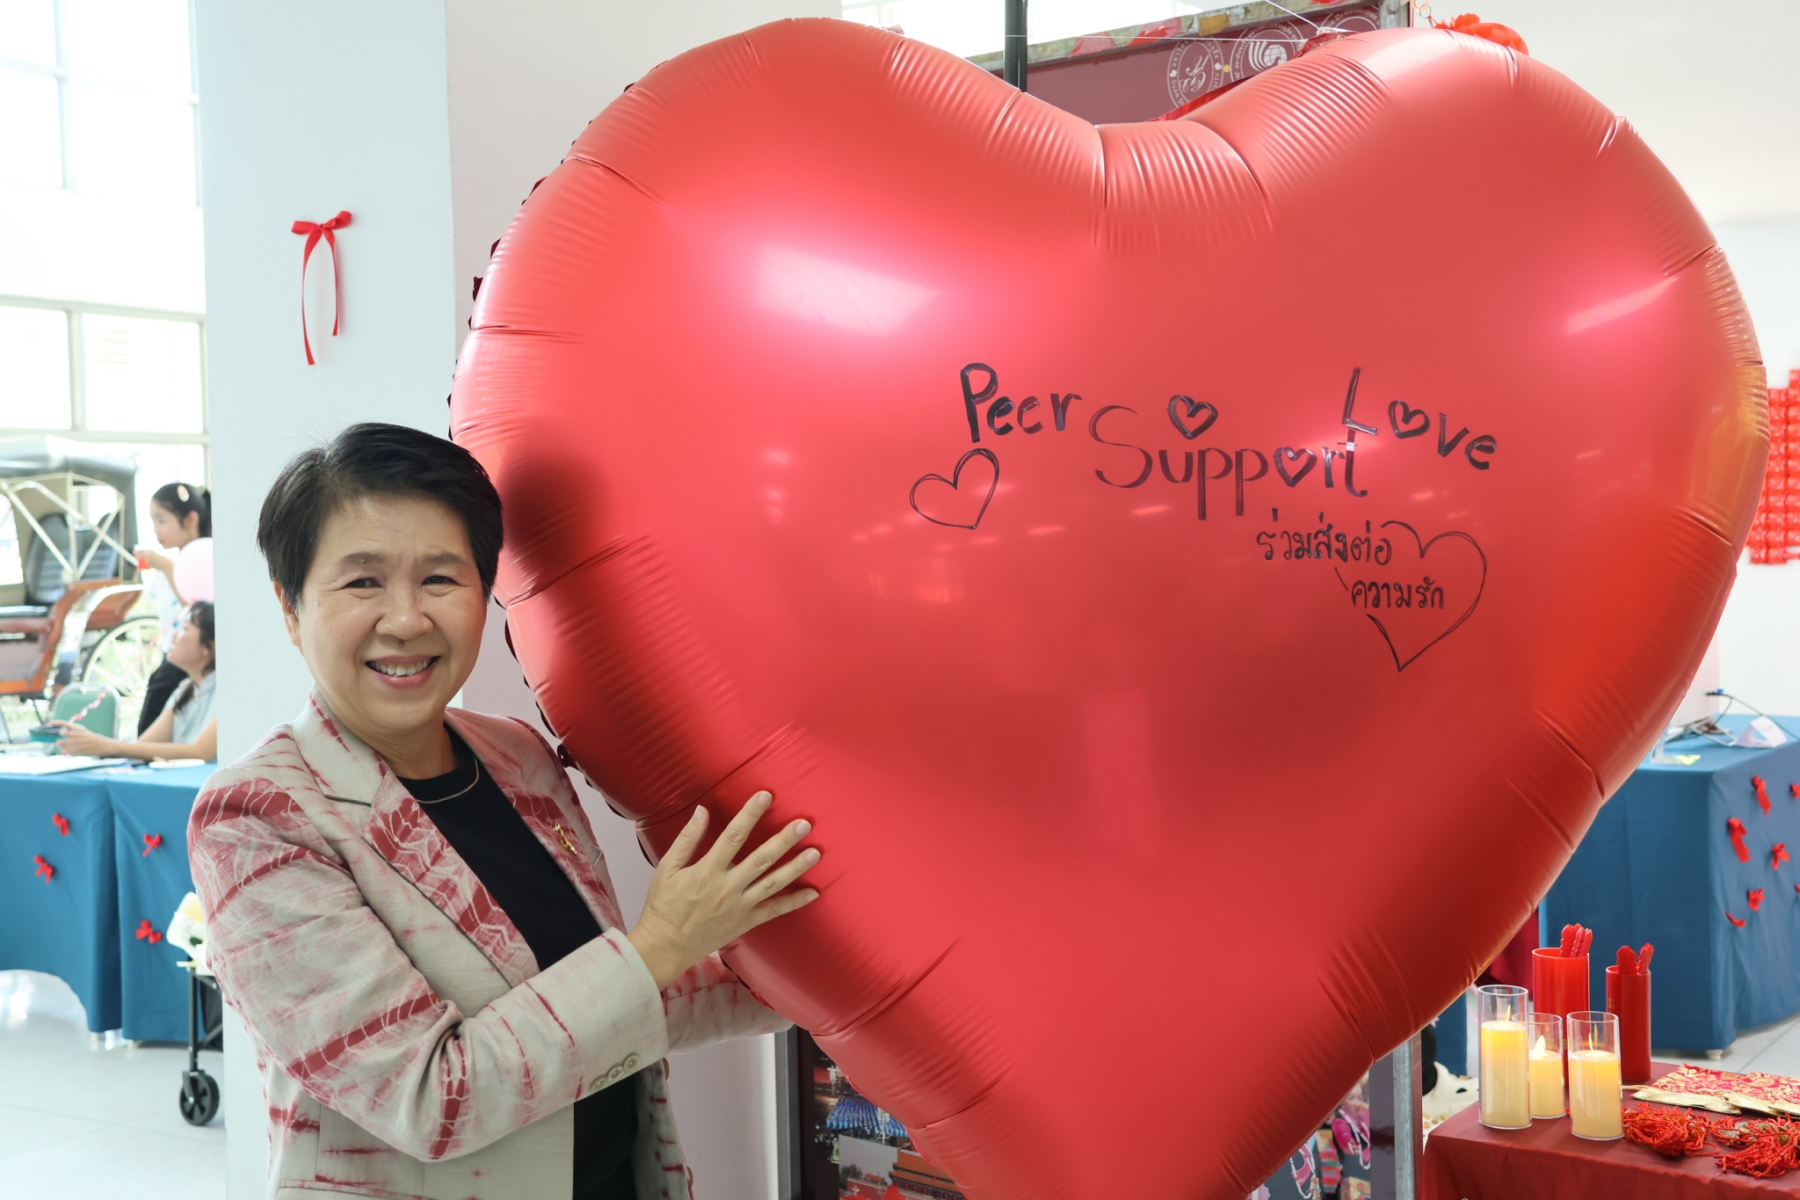 Peer Support Love
ร่วมส่งต่อ
ความรัก